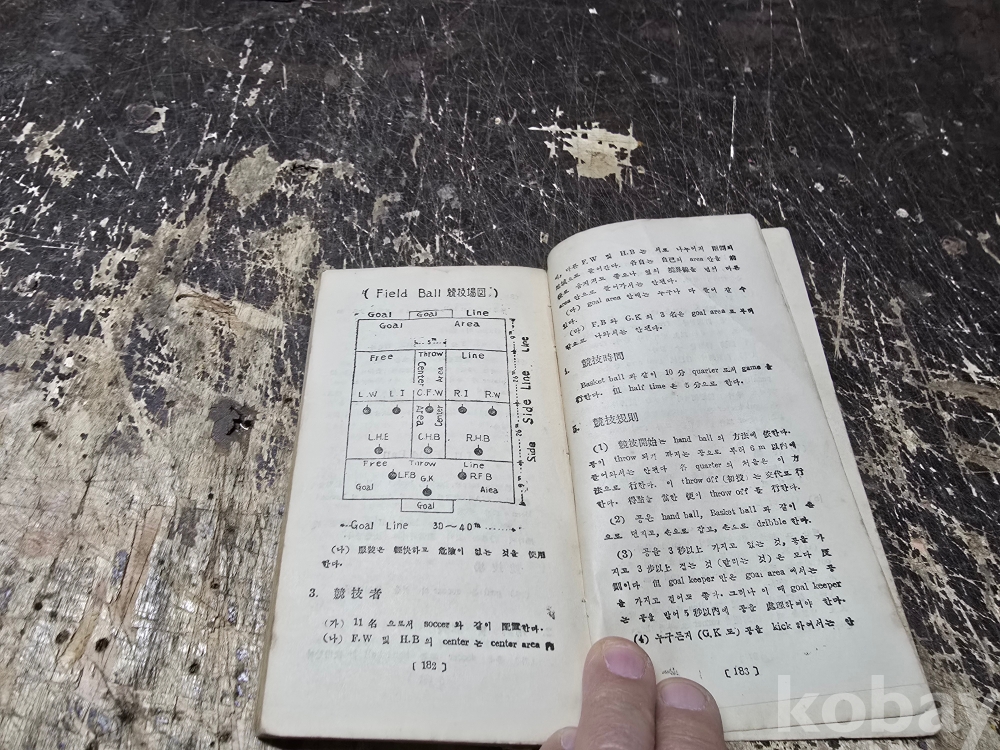 ( Field Ball 競技場図 )
Goal Goal Line
Goal Area
5m
Free Throw Line
Center Area
L.W L I C.F.W R.I R.W
Area Center
L.H.E C.H.B R.H.B
Free Throw Line
L.F.B G.K R.F.B
Goal Area
Goal
Side Line Side Line
Goal Line 30～40m
(나) 服裝은 輕快하고 危險이 없는 것을 使用
한다.
3. 競技者
(가) 11名 으로서 soccer와 같이 配置한다.
(나) F.W 및 H.B의 center는 center area 內
[ 182 ]
다른 F.W 및 H.B는 서로 나누어저
으로 들어간다. 各自는 自己의 area 안을
area 안으로 들어가서는 안된다.
(다) goal area 안에는 누구나 다 들어 갈 수
있다.
(라) F.B와 G.K의 3名은 goal area로 부터
밖으로 나와서는 안된다.
4. 競技時間
Basket ball과 같이 10分 quarter로서 game을
行한다. 但 half time은 5分으로 한다.
5. 競技規則
(1) 競技開始는 hand ball의 方法에 依한다.
공이 throw 되기 까지는 공으로 부터 6m 以內에
들어와서는 안된다 各 quarter의 처음은 이 方
法으로 行한다. 이 throw off (初投)는 交代로 行
한다. 得點을 當한 便이 throw off를 行한다.
(2) 공은 hand ball, Basket ball과 같이 손
으로 던지고, 손으로 잡고, 손으로 dribble 한다.
(3) 공을 3秒以上 가지고 있는 것, 공을 가
지고 3步以上 걷는 것 (달리는 것)은 모다 反
則이다 但 goal keeper만은 goal area에서는 공
을 가지고 걸어도 좋다. 그러나 이 때 goal keeper
는 공을 받어 5秒以內에 공을 處理하여야 한다.
(4) 누구든지 (G.K도) 공을 kick 하여서는 안
[ 183 ]
kobay